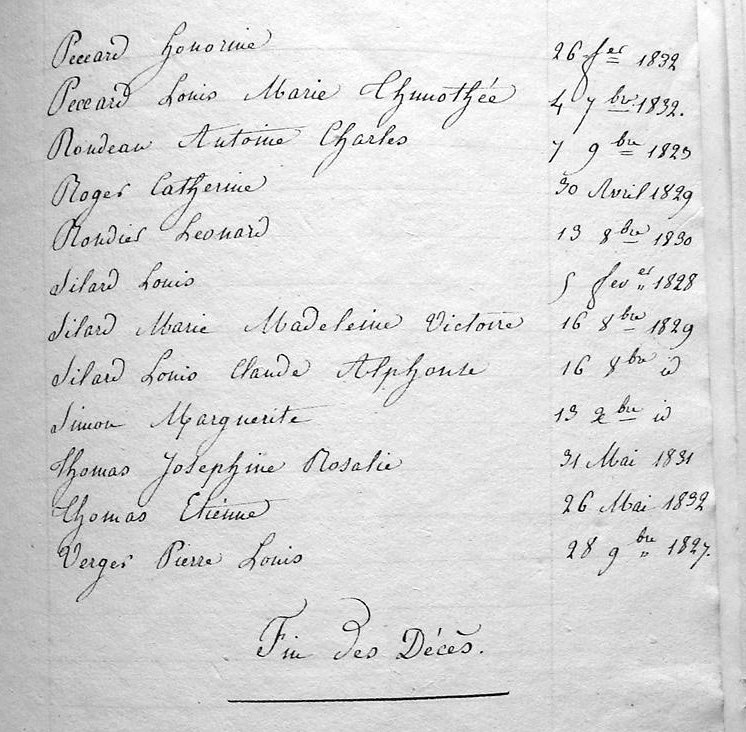 Peccard Honorine 26 fer 1832
Peccard Louis Marie Thimothée 4 7bre 1832.
Rondeau Antoine Charles 7 9bre 1823
Roger Catherine 30 Avril 1829
Rondier Leonard 13 8bre 1830
Silard Louis 5 fever 1828
Silard Marie Madeleine Victoire 16 8bre 1829
Silard Louis Claude Alphonse 16 8bre id
Simon Marguerite 13 xbre id
Thomas Josephine Rosalie 31 Mai 1831
Thomas Etienne 26 Mai 1832
Verger Pierre Louis 28 9bre 1827.
Fin des Décès.